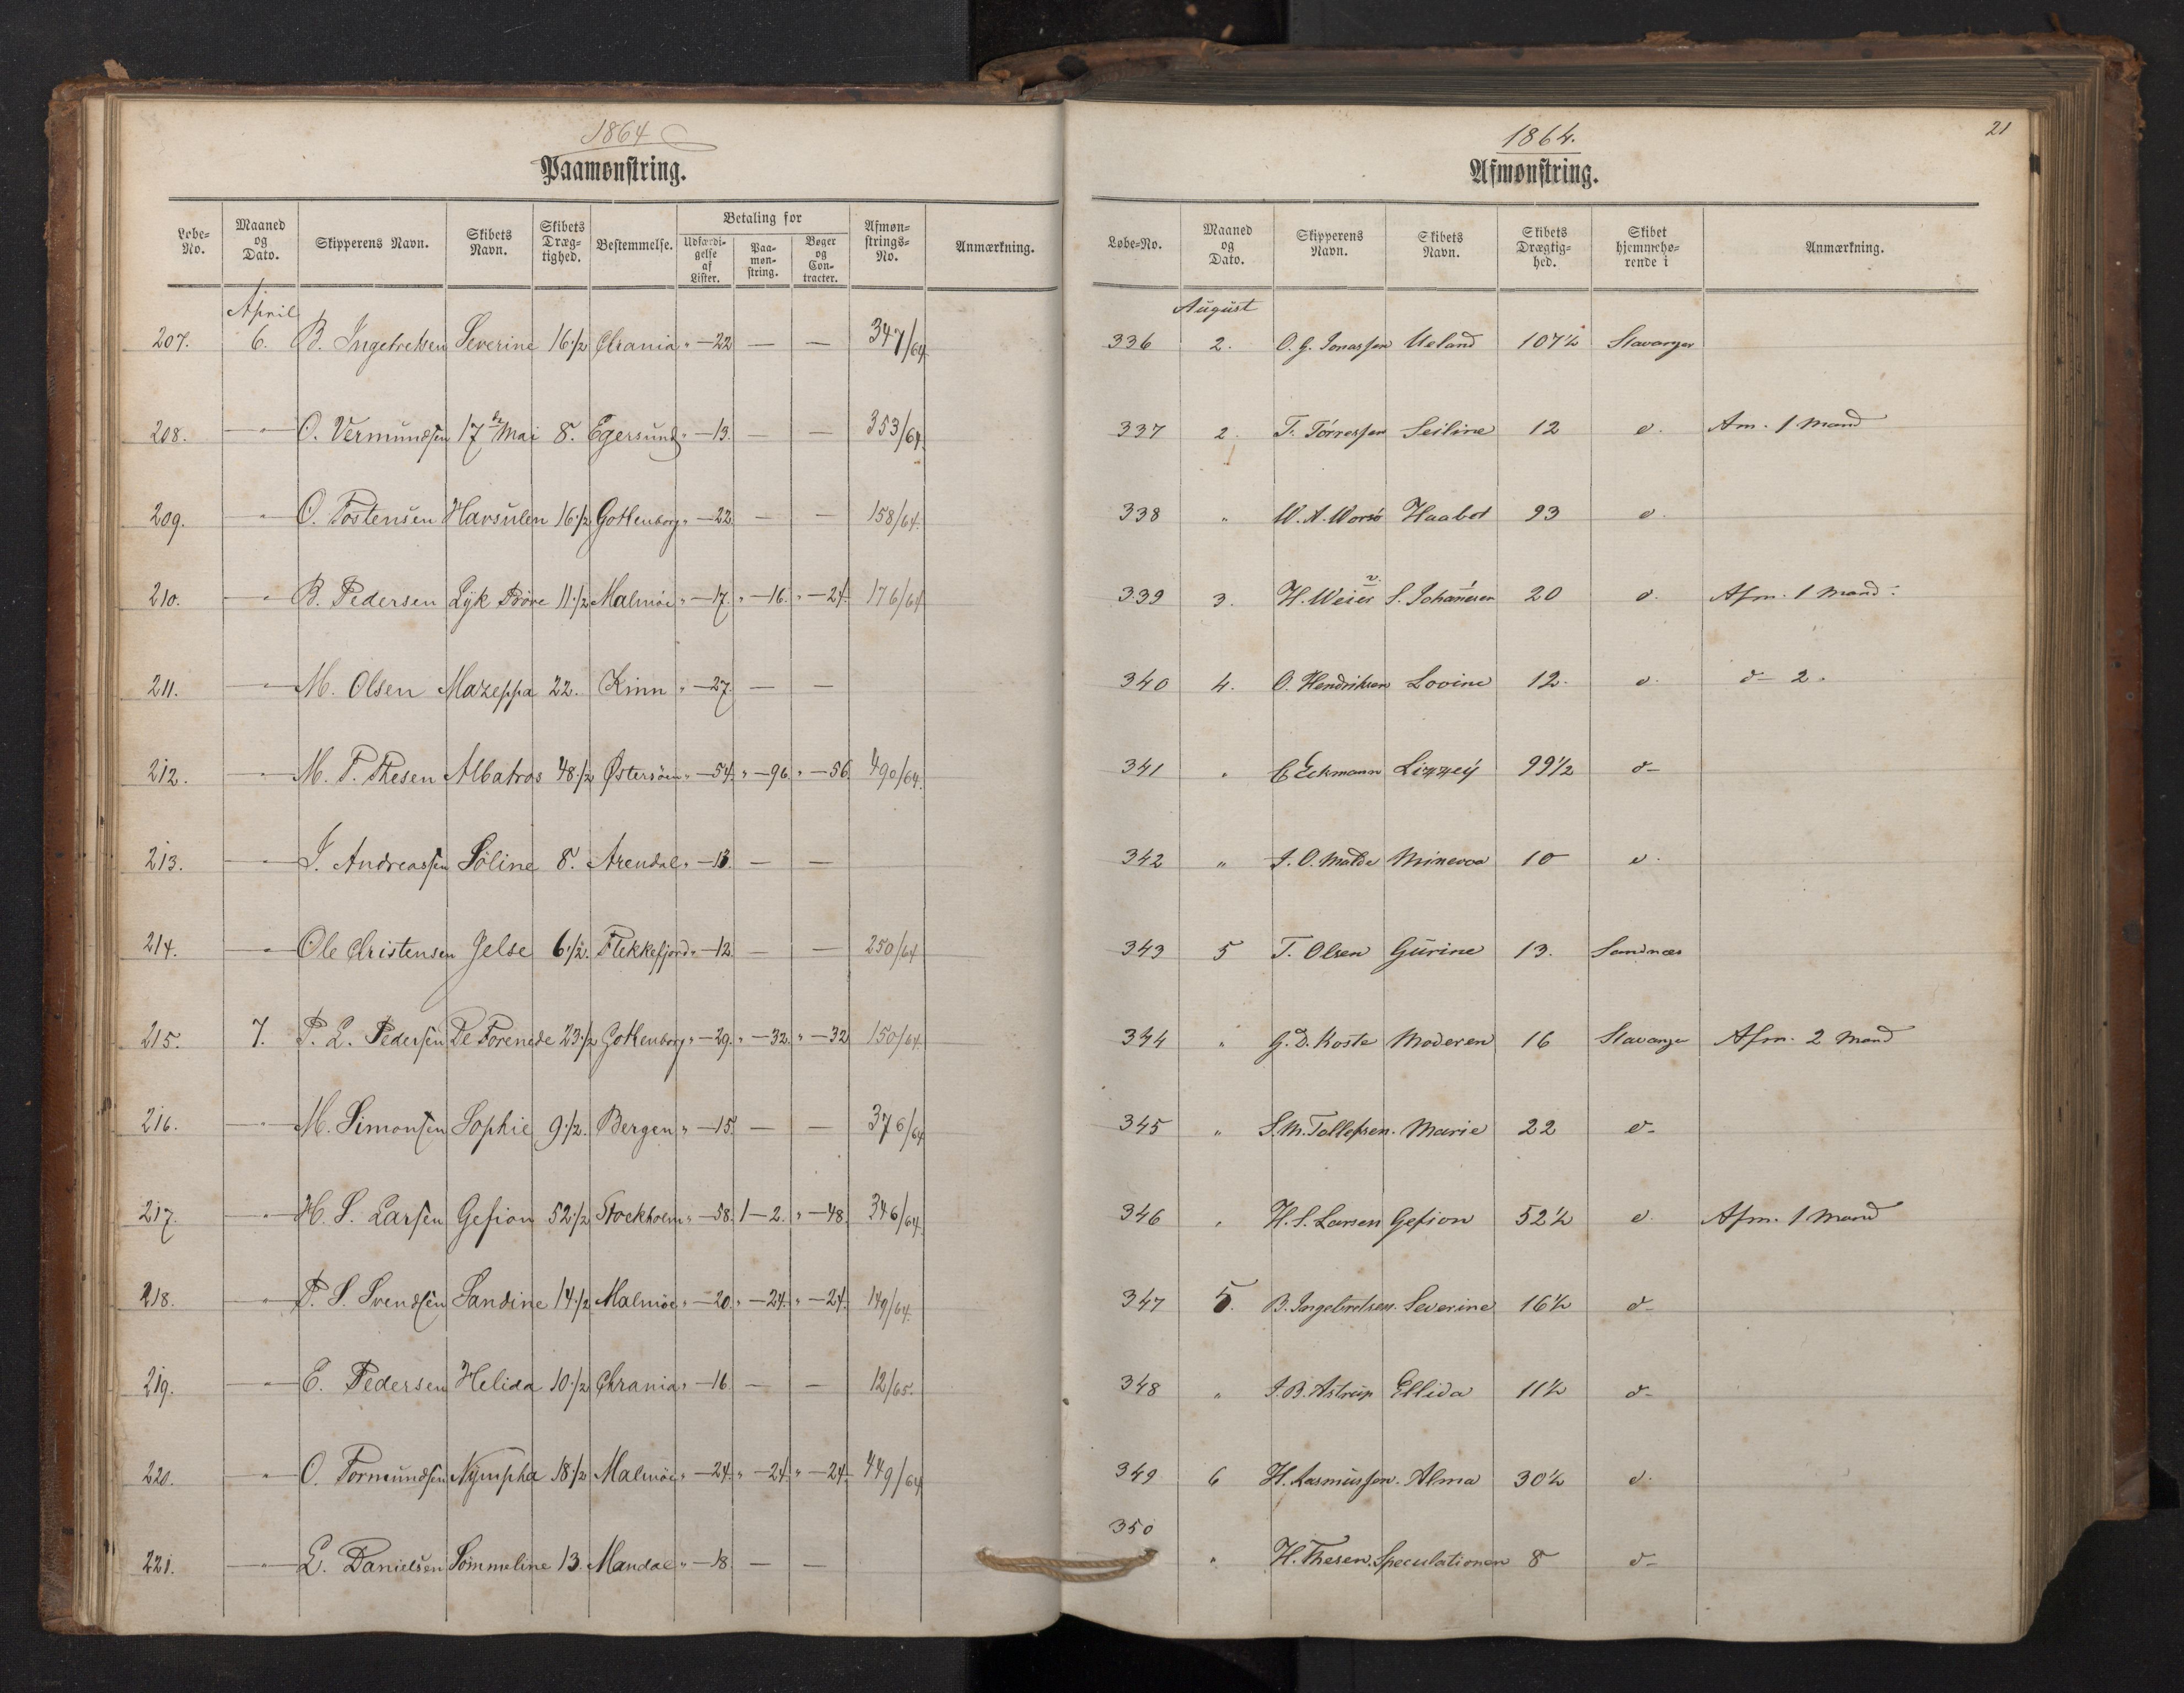 1864
Paamønstring.
Løbe-No. Maaned og Dato. Skipperens Navn. Skibets Navn. Skibets Dræg-tighed. Bestemmelse. Betaling for Udfærdi-gelse af Lister. Paa-møn-string. Bøger og Con-tracter. Afmøn-strings-No. Anmærkning.
April
207. 6. B. Ingebretsen Severine 16 1/2 Chrania " — 22 — — 347/64
208. — " — O. Vermundsen 17de Mai 8. Egersund " — 13. — — 353/64.
209. — " — O. Tostensen Havsulen 16 1/2 Gottenborg " — 22. — — 158/64.
210. — " — B. Pedersen Lyk Prøve 11 1/2 Malmöe " — 17. " — 16. " — 24. 176/64
211. — " — M. Olsen Mazeppa 22. Kinn " — 27. — —
212. — " — M. T. Thesen Albatros 48 1/2 Østersöen " — 54. " — 96. " — 56 490/64.
213. — " — J. Andreassen Söline 8. Arendal " — 13. — —
214. — " — Ole Christensen Jelse 6 1/2. Flekkefjord " — 12. — — 250/64
215. 7. P. L. Pedersen De Forenede 23 1/2 Gottenborg " — 29. " — 32. " — 32 150/64.
216. — " — M. Simonsen Sophie 9 1/2. Bergen " — 15. — — 376/64
217. — " — H. S. Larsen Gefion 52 1/2 Stockholm " — 58. 1 — 2. " — 48. 346/64.
218. — " — P. S. Svendsen Sandine 14 1/2 Malmöe " — 20. " — 24. " — 24. 149/64.
219. — " — E. Pedersen Helida 10 1/2 Chrania " — 16. — — 12/65.
220. — " — O. Tormundsen Nympha 18 1/2 Malmöe " — 24. " — 24. " — 24. 449/64
221. — " — L. Danielsen Sømmeline 13. Mandal " — 18. — —
21
1864.
Afmønstring.
Løbe-No. Maaned og Dato. Skipperens Navn. Skibets Navn. Skibets Drægtig-hed. Skibet hjemmehø-rende i Anmærkning.
August
336 2. O. G. Jonassen Ueland 107 1/2 Stavanger
337 2. T. Törressen Seiline 12 d. Am. 1 Mand
338 " W. A. Worsö Haabet 93 d.
339 3. H. Weier v. S. Johannesen 20 d. Afm. 1 Mand.
340 4. O. Hendriksen Lovine 12. d. d— 2.
341 " C Eckmann Lizzey 99 1/2 d—
342 " J. O. Malde Minerva 10 d.
343 5 T. Olsen Gurine 13. Sandnæs
344 " G. D. Koste Moderen 16 Stavanger Afm. 2 Mand
345 " S. M. Tollefsen. Marie 22 d—
346 " H. S. Larsen Gefion 52 1/2 d. Afm. 1 Mand
347 5. B. Ingebretsen. Severine 16 1/2 d—
348 " J. B. Astrup Ellida 11 1/2 d—
349 6 H. Rasmussen. Alma 30 1/2 d.
350 " H. Thesen. Speculationen 8 d—